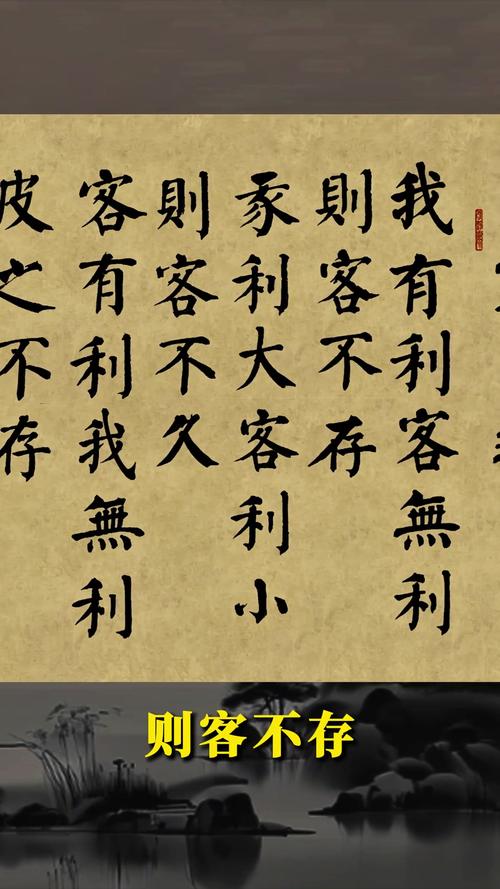 我有利客無利
則客不存
利大客利小
則客不久
客有利我無利
皮之不存
则客不存